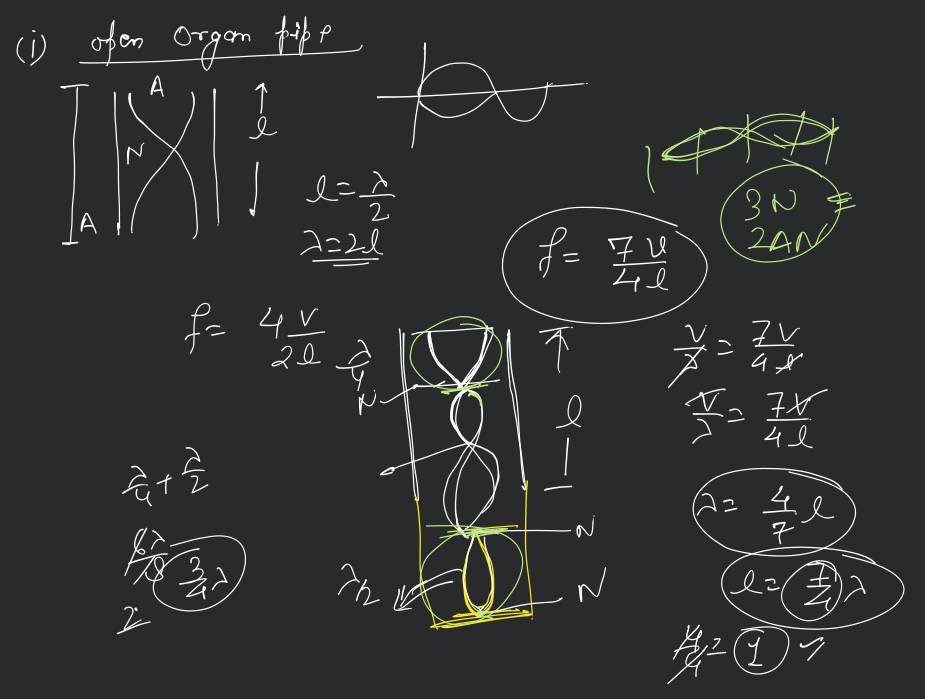 (i) open Organ pipe
A
N
A
l
l = λ/2
λ = 2l
3N
2AN
f = 7v/4l
f = 4v/2l
λ/4
N
l
v/λ = 7v/4l
v/λ = 7v/4l
λ/4 + λ/2
3/4 λ
2
λ = 4/7 l
N
l = 7/4 λ
λ/2
N
= 1